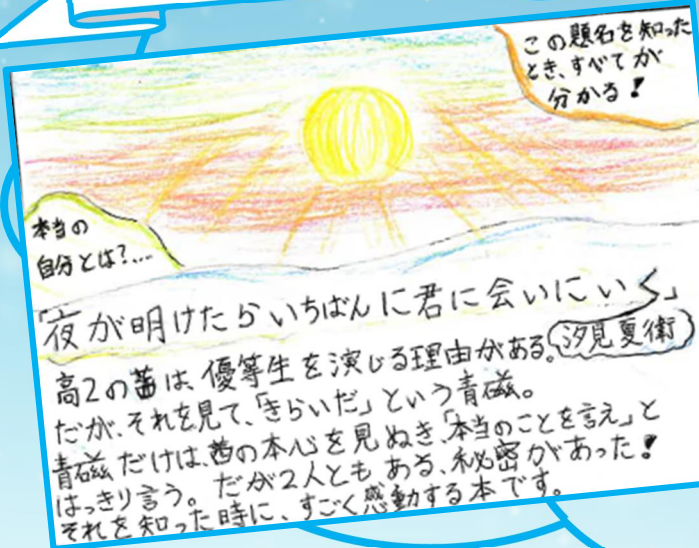 この題名を知った
とき、すべてが
分かる!
本当の
自分とは?…
「夜が明けたらいちばんに君に会いにいく」
汐見夏衛
高2の茜は、優等生を演じる理由がある。
だが、それを見て、「きらいだ」という青磁。
青磁だけは、茜の本心を見ぬき、「本当のことを言え」と
はっきり言う。だが2人とも ある、秘密があった!
それを知った時に、すごく感動する本です。